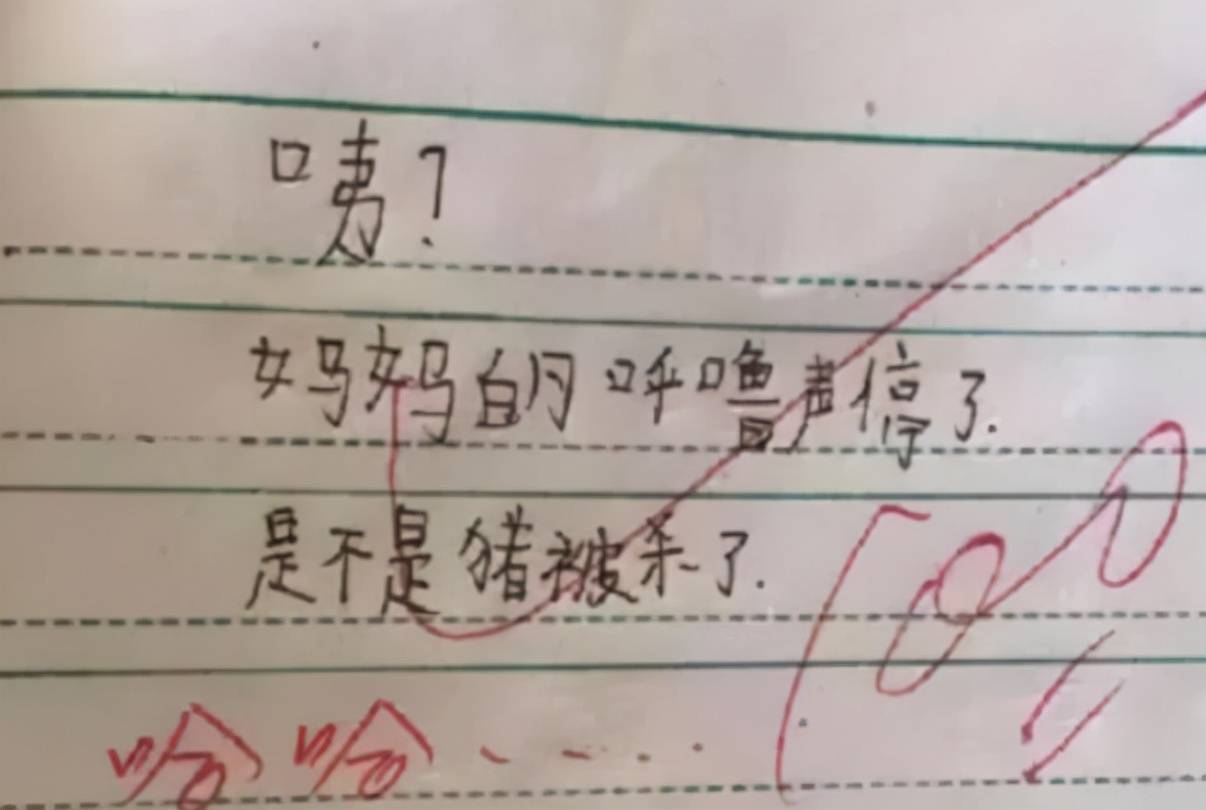 咦?
妈妈的呼噜声停了.
是不是猪被杀了.
100
哈哈.....